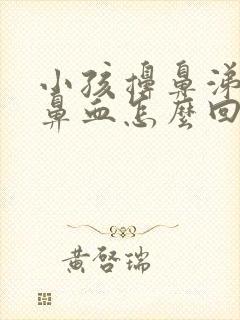 小孩擤鼻涕
鼻血怎麼回
黄啓瑞